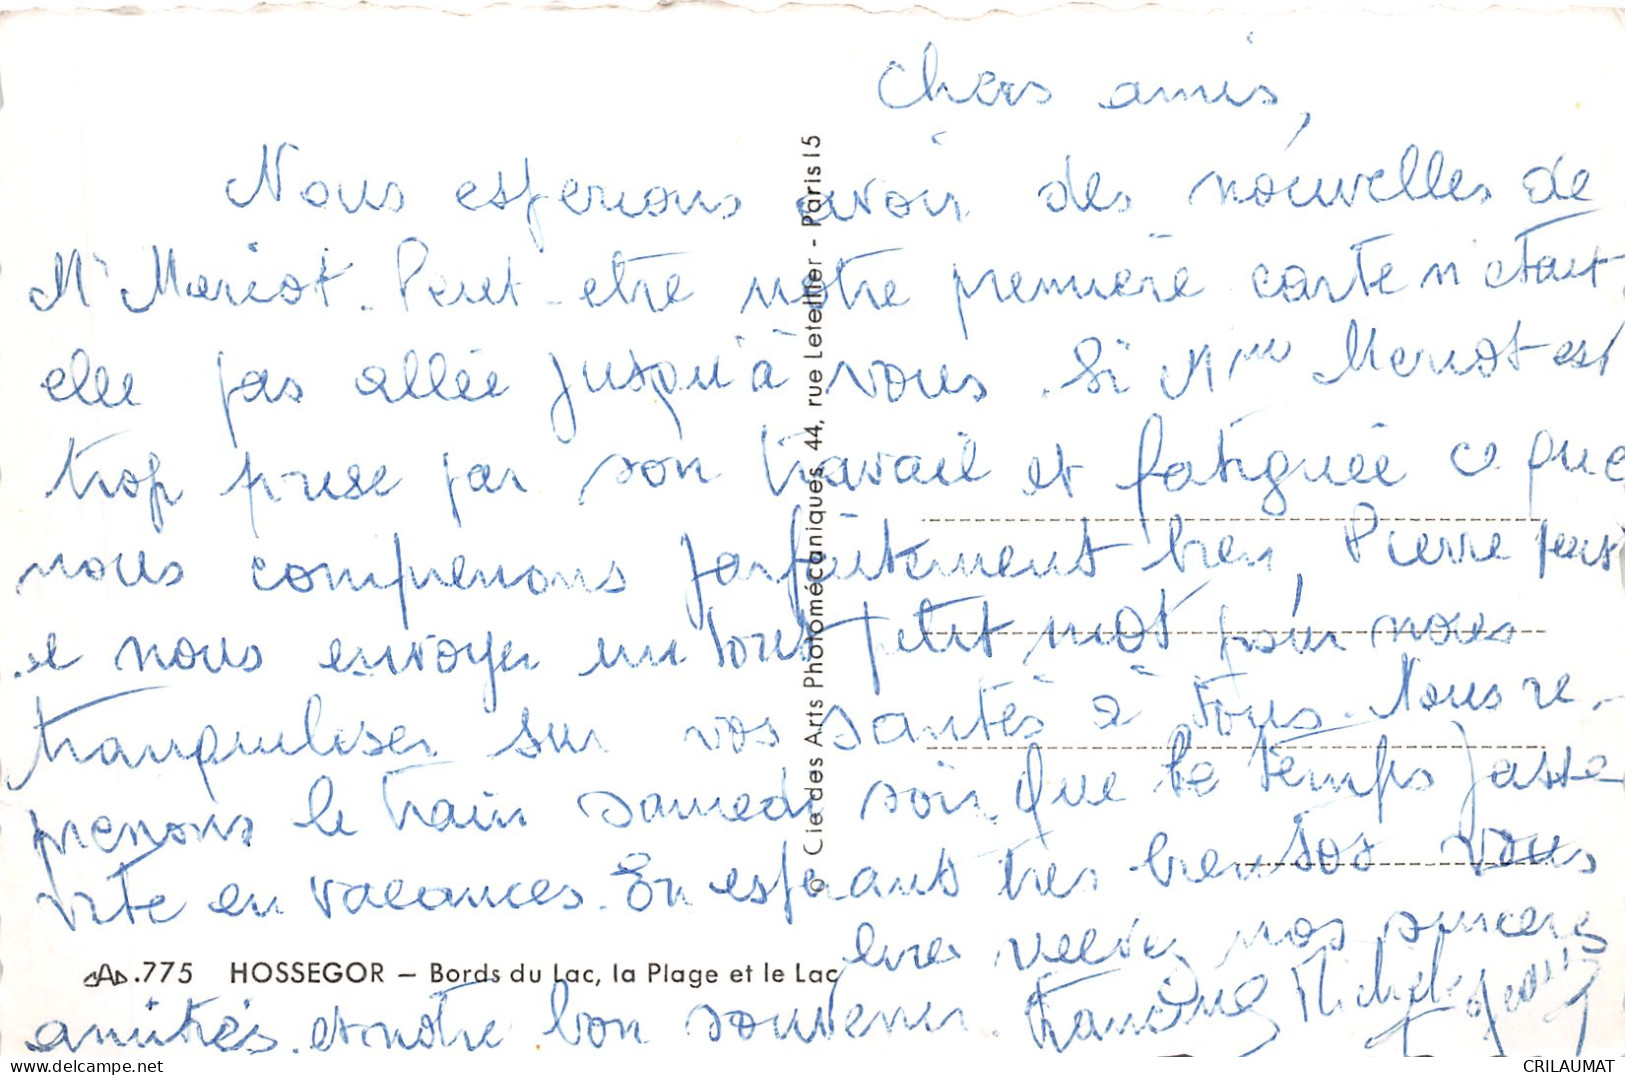 Chers amis,
Nous esperions avoir des nouvelles de
Mr Meriot. Peut-etre notre première carte n'était
elle pas allée jusqu'à vous. Si Mme Meriot est
trop prise par son travail et fatiguée ce que
nous comprenons parfaitement bien, Pierre peut
il nous envoyer un tout petit mot pour nous
tranquiliser sur vos santés à tous. Nous re-
prenons le train samedi soir. Que le temps passe
vite en vacances. En esperant très bientôt vous
lire, veuillez nos sincères
amitiés et notre bon souvenir. Francine Michel
.775 HOSSEGOR – Bords du Lac, la Plage et le Lac
© Cie des Arts Photomécaniques, 44, rue Letellier - Paris 15
https://www.delcampe.net
CRILAUMAT